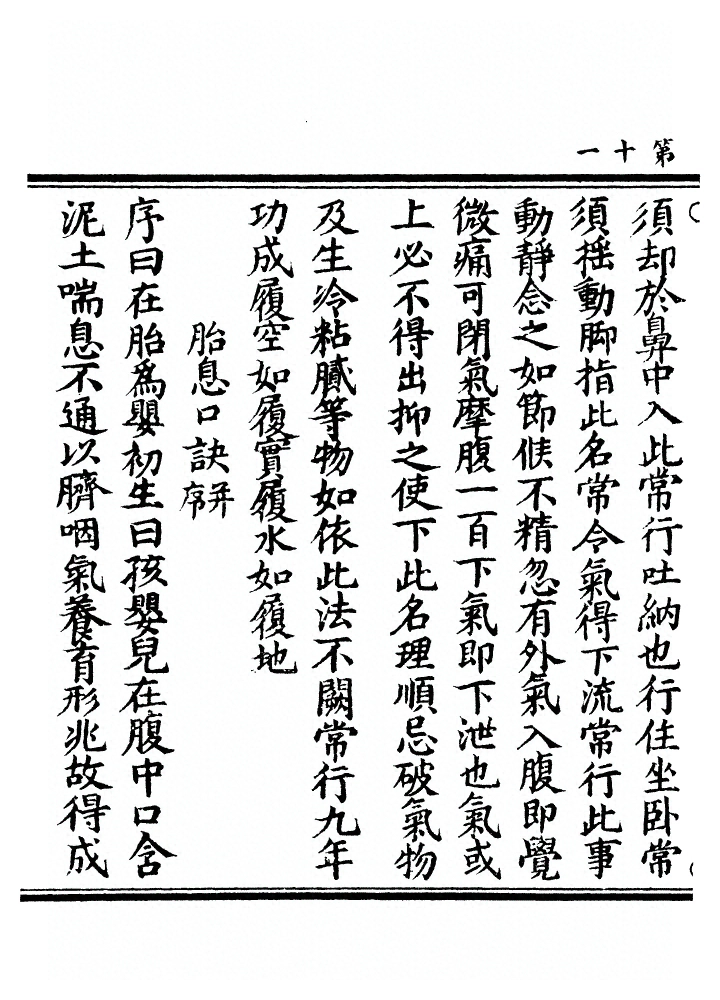 第十一
須却於鼻中入此常行吐納也行住坐卧常
須搖動脚指此名常令氣得下流常行此事
動靜念之如節候不精忽有外氣入腹即覺
微痛可閉氣摩腹一百下氣即下泄也氣或
上必不得出抑之使下此名理順忌破氣物
及生冷粘膩等物如依此法不闕常行九年
功成履空如履實履水如履地
胎息口訣并序
序曰在胎為嬰初生曰孩嬰兒在腹中口含
泥土喘息不通以臍咽氣養育形兆故得成